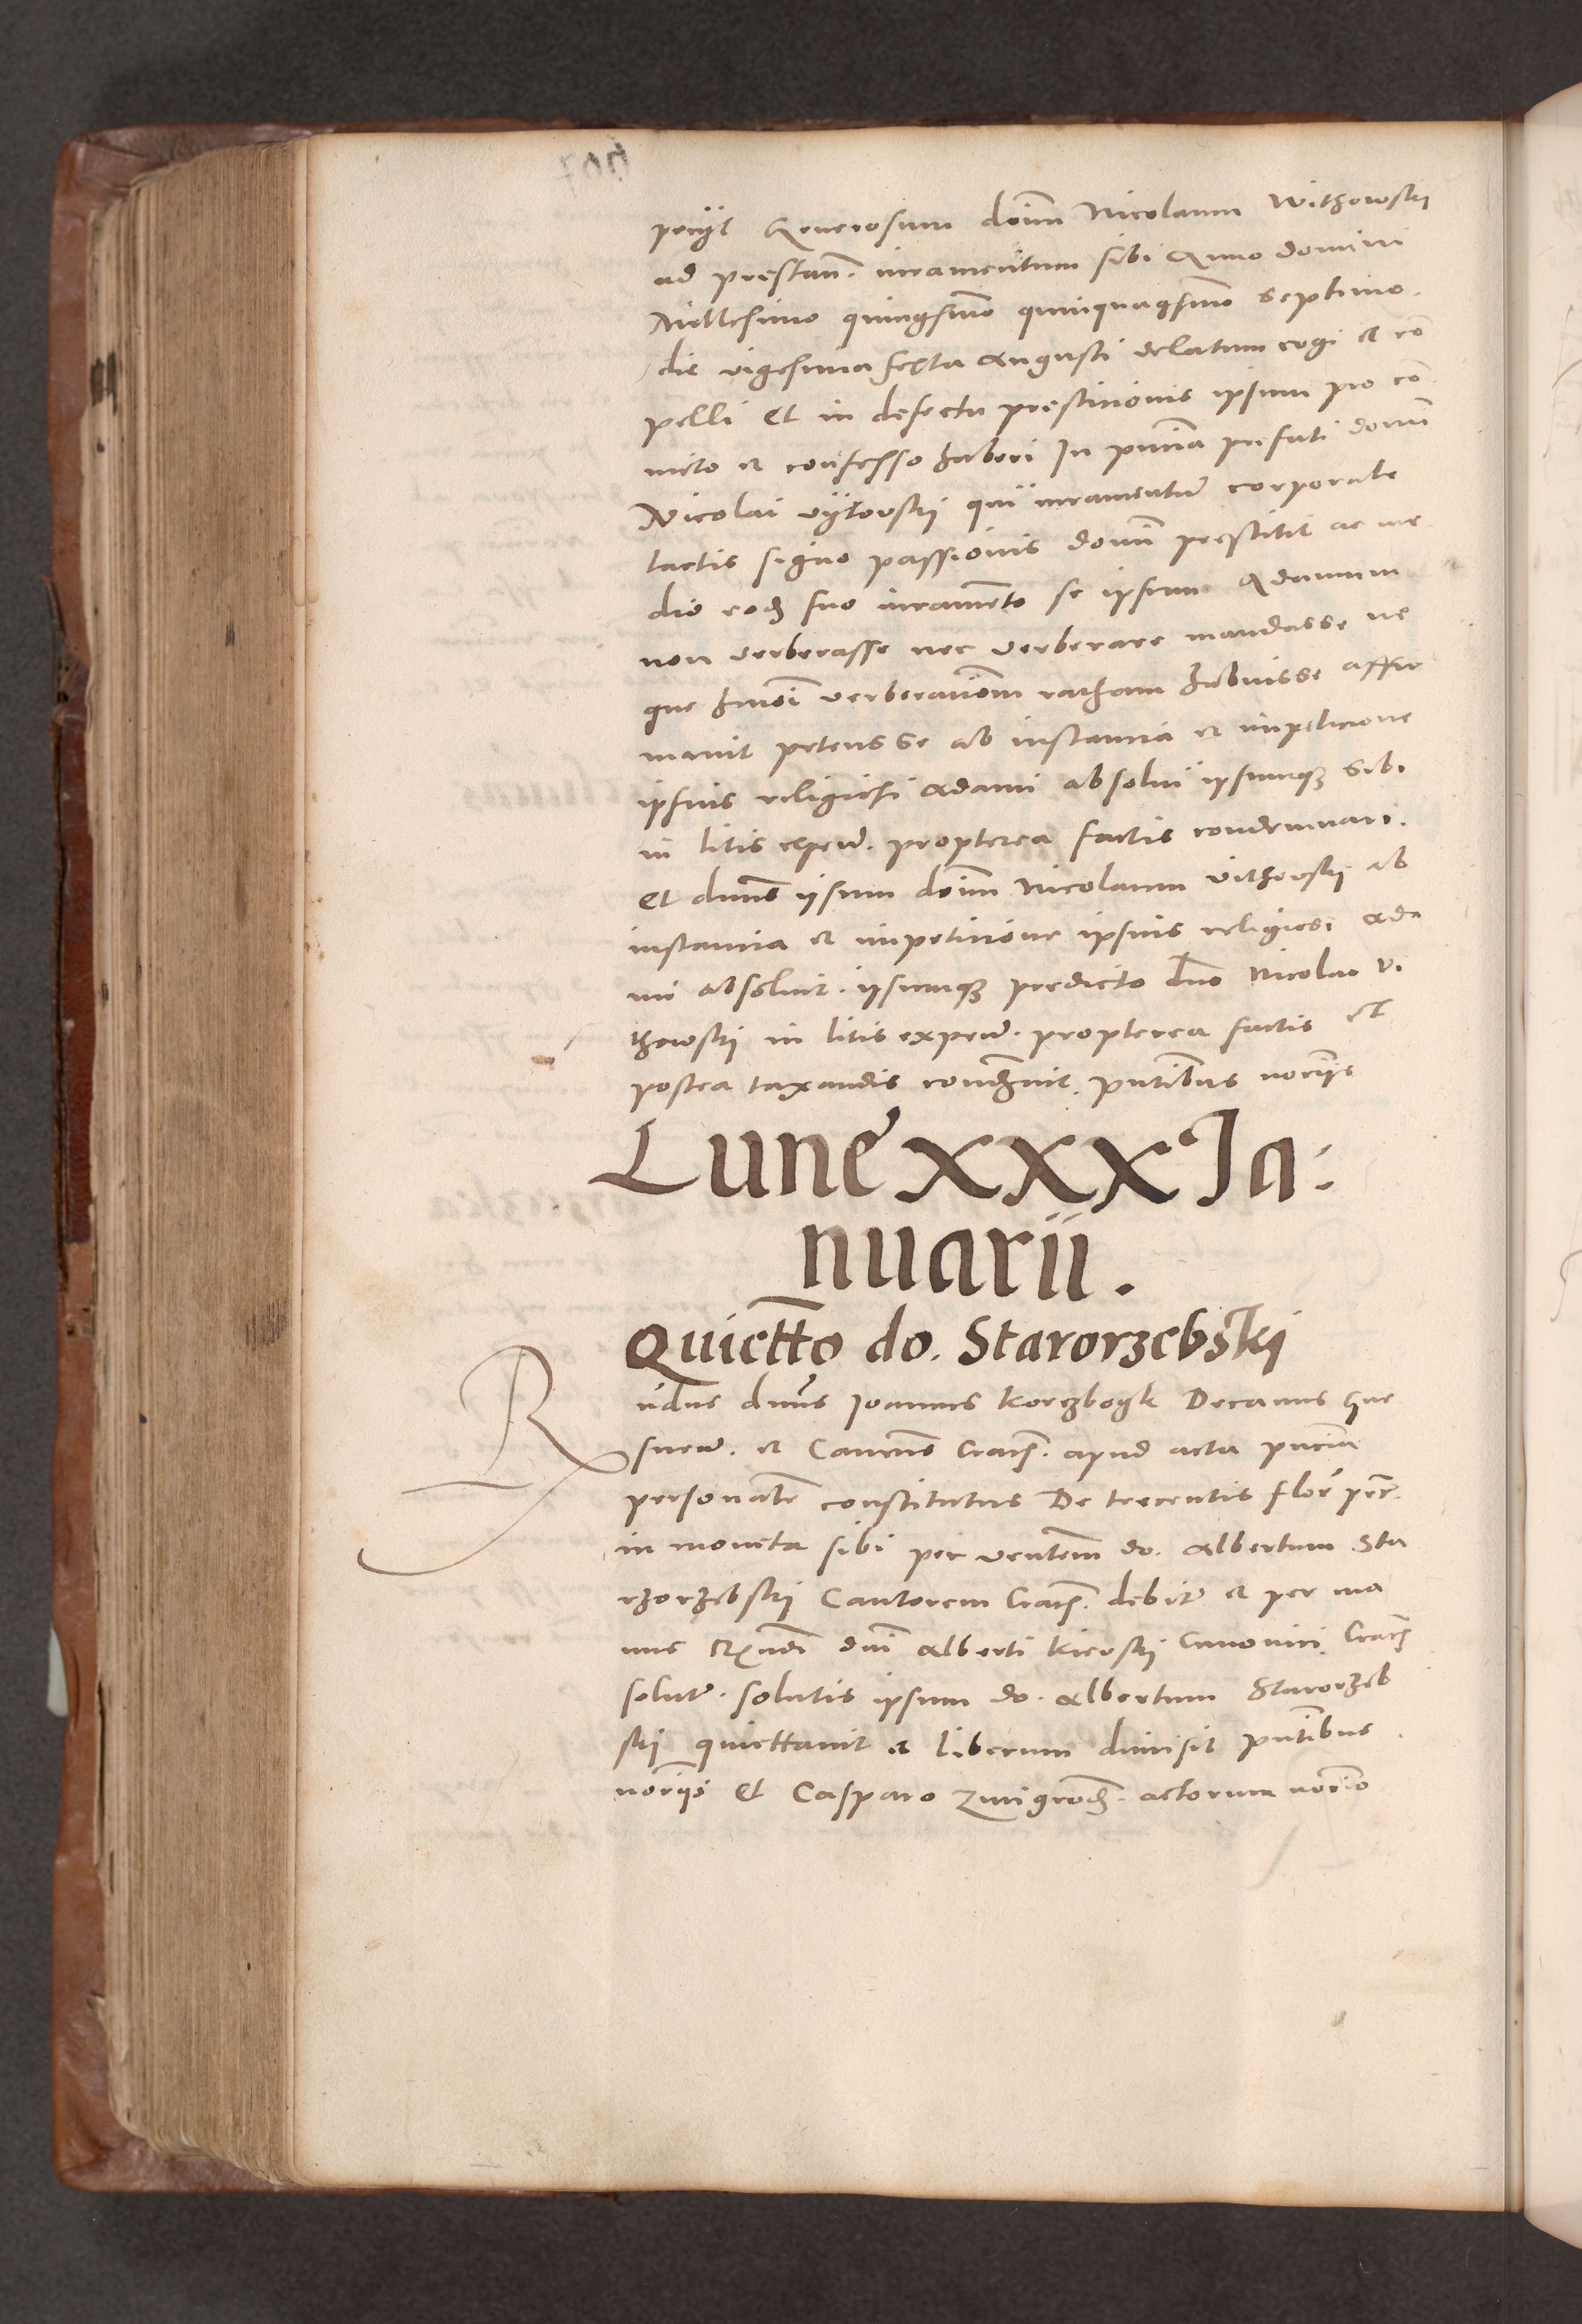 petiit Generosum dom̄ Nicolaum Withowskÿ
ad prestan̄. iuramentum sibi Anno domini
Millesimo quingesimo quinquagesimo septimo.
die vigesima sexta Augusti delatum cogi et cō
pelli Et in defectu prestitionis ipsum pro cō
victo et confesso haberi In pn̄cia prefati domī
Nicolai vÿtovskÿ qui iuramentū corporale
tactis signo passionis domī prestitit ac me
dio eodē suo iuramēto se ipsum Adamum
non verberasse nec verberare mandasse ne
que hmōi verberationem ratham habuisse affir
mavit petens se ab instancia et impeticione
ipsius religiosi Adami absolvi ipsumque sibi
in litis expen̄. propterea factis condemnari.
Et dn̄us ipsum dom̄ Nicolaum Vithovskÿ ab
instancia et impeticione ipsius religiosi Ada
mi absoluit. ipsumque predicto dn̄o Nicolao Vi
thowskÿ in litis expen̄. propterea factis et
postea taxandis condēnavit. pn̄tibus nor̄ijs
Lune XXX Ja:
nuarii.
Quiett̄o do. Starorzebskÿ
R
v̄dus dn̄us Joannes Korczbogk Decanus Gne
snen̄. et Canōcus Crac̄. apud acta pn̄cia
personal̄r constitutus De trecentis flor̄ pec̄.
in moneta sibi per ven̄lem do. Albertum Sta
rzorzebskÿ Cantorem Crac̄. debit̄ et per ma
nus R̄vndi dn̄i Alberti Kicoskÿ Canonici Crac̄
solut̄. solutis ipsum do. Albertum Starorzeb
skÿ quiettavit et liberum dimisit pn̄tibus
nor̄ijs Et Casparo Zmigrod̄. actorum nor̄io